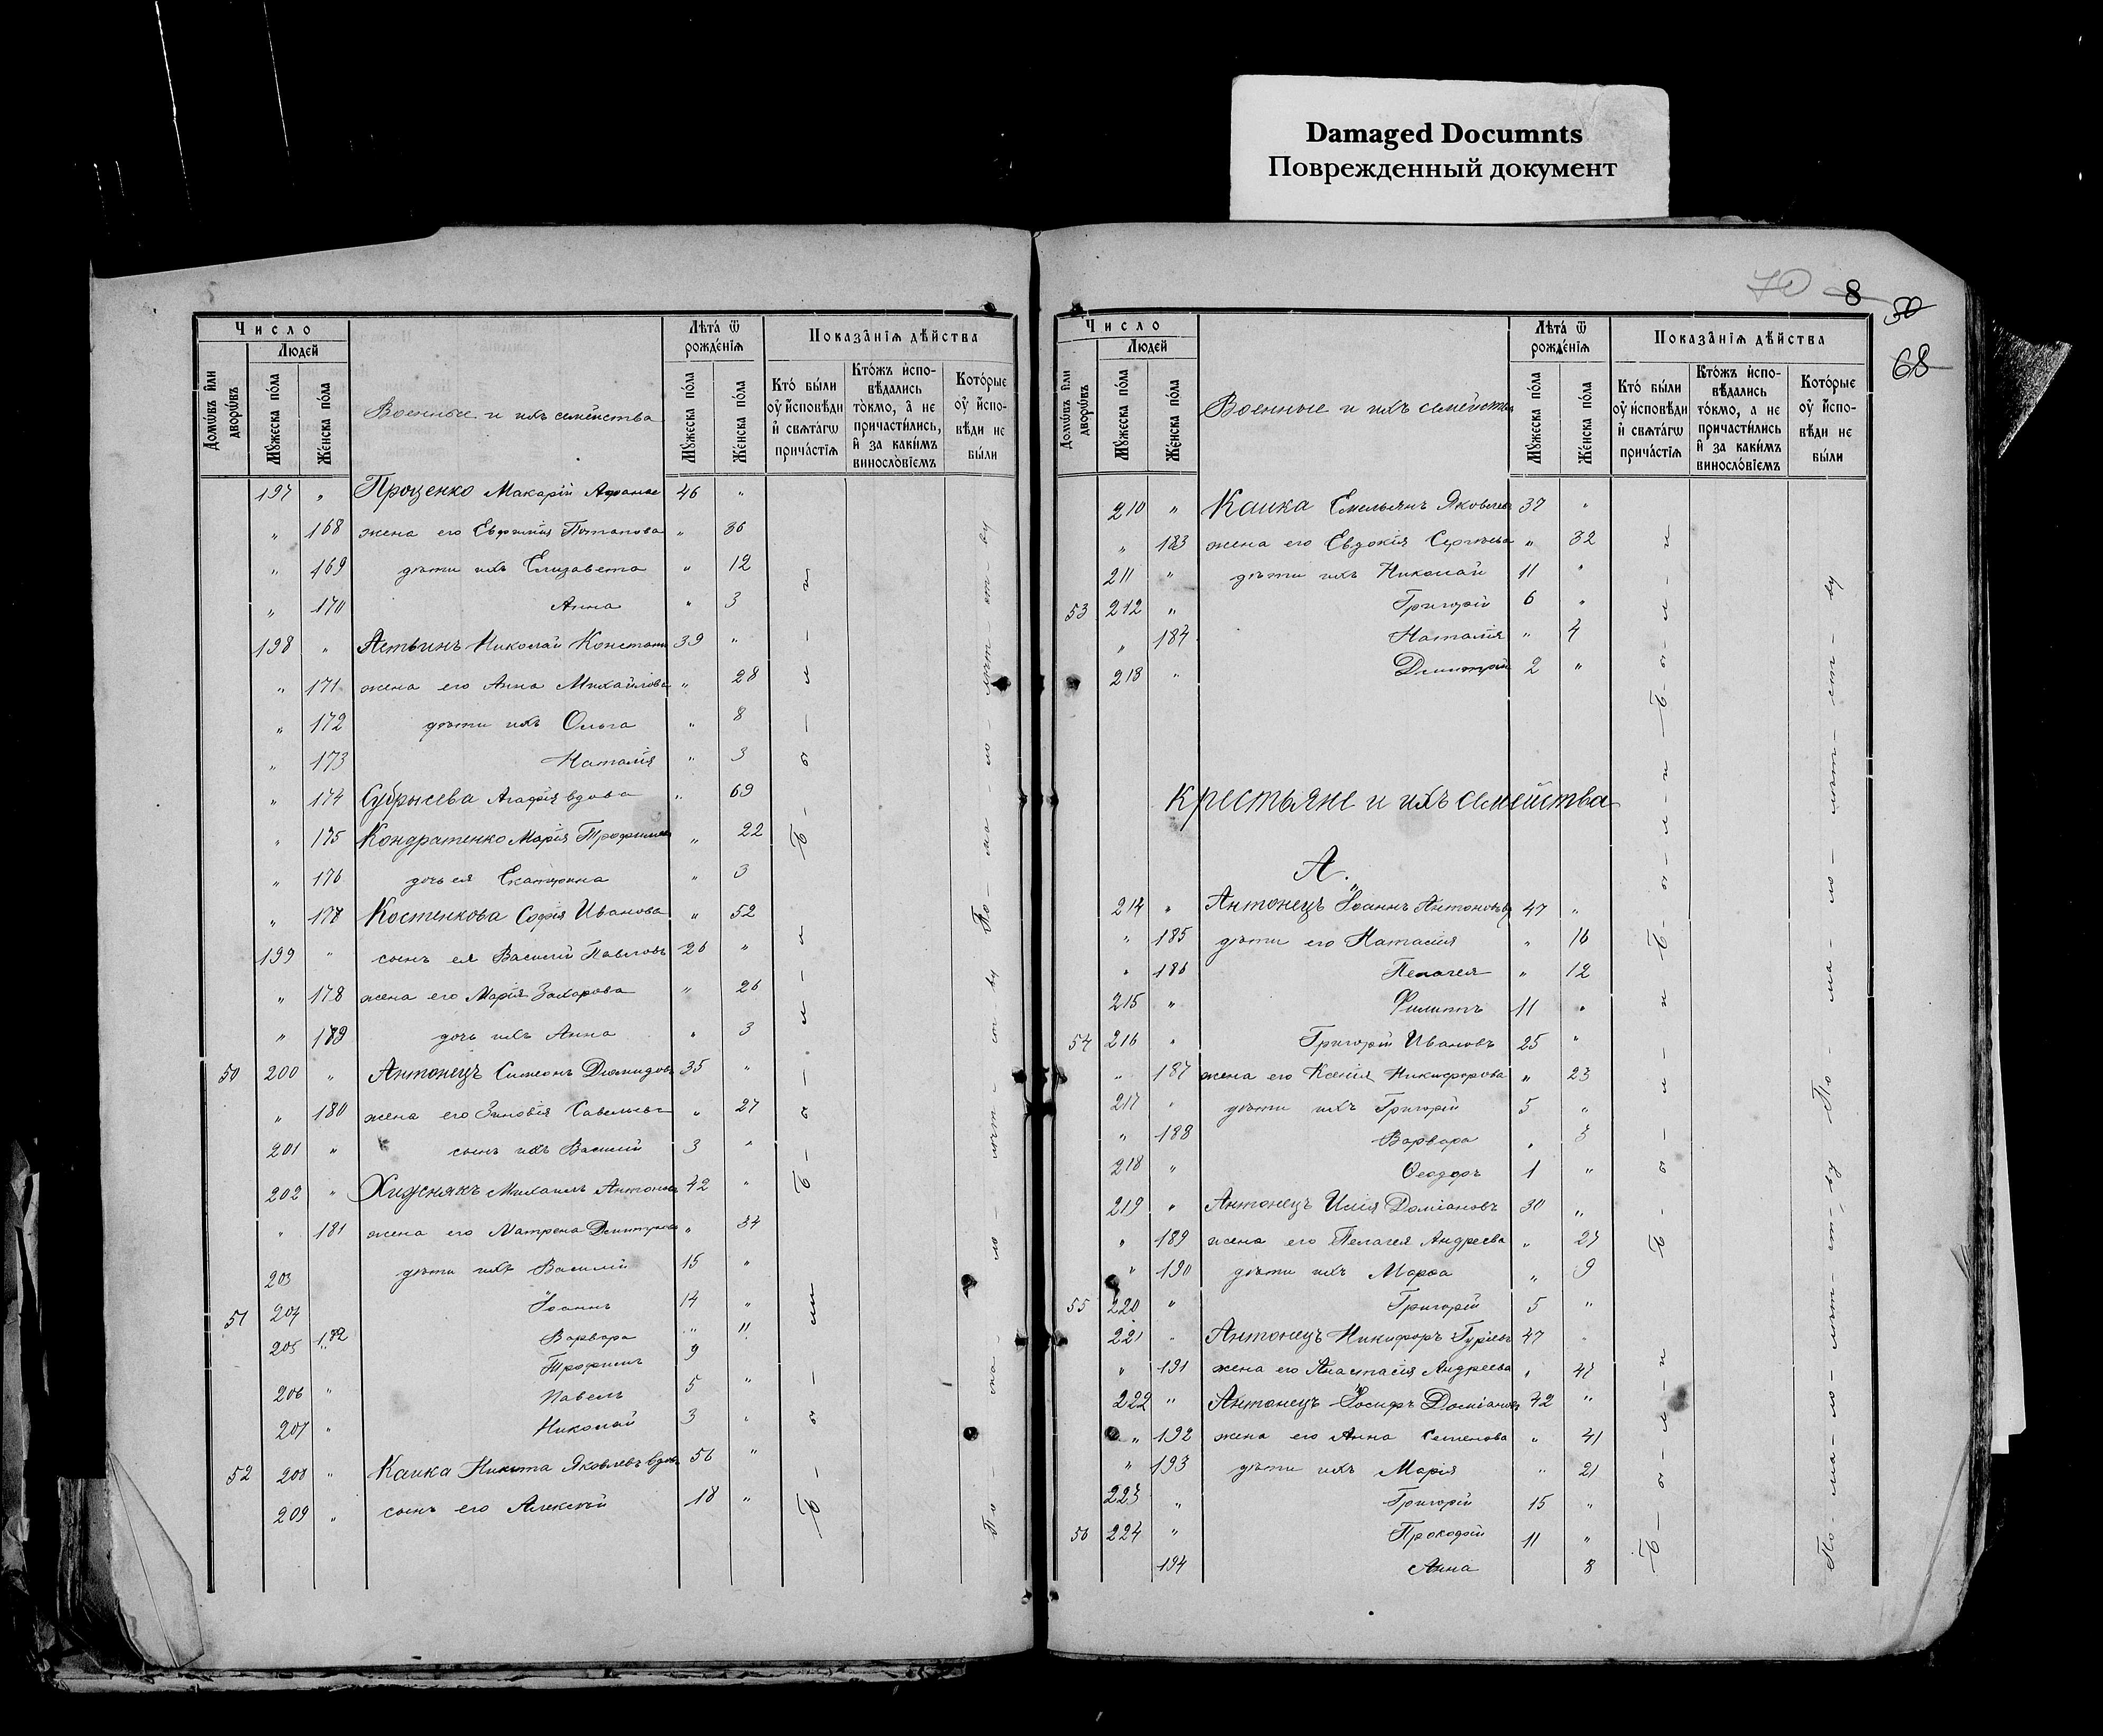 Damaged Documnts
Поврежденный документ
70 8 50
68
Число
Людей
Домѡвъ или дворѡвъ
Мꙋжеска пола
Женска пола
Военные и ихъ семейства
Лѣта ѿ рожденїѧ
Мꙋжеска пола
Женска пола
Показанїѧ дѣйства
Кто были оу исповѣди и свѧтагѡ причастїѧ
Ктожъ исповѣдались токмо, а не причастились, и за какимъ винословїемъ
Которые оу исповѣди не были
197 " Проценко Макарій Афанас 46 "
" 168 жена его Евфимія Потапова " 36
" 169 дѣти ихъ Елизавета " 12
" 170 Анна " 3
198 " Николай Констант 39 "
" 171 жена его Анна Михайлова " 28
" 172 дѣти ихъ Ольга " 8
" 173 Наталія " 3
" 174 Агафія вдова " 69
" 175 Кондратенко Марія Трофимова " 22
" 176 дочь ея Екатерина " 3
" 177 Костенкова Софія Иванова " 52
199 " сынъ ея Василій Павловъ 26 "
" 178 жена его Марія Захарова " 26
" 179 дочь ихъ Анна " 3
50 200 " Антонецъ Симеонъ Діомидовъ 35 "
" 180 жена его Зиновія Савельева " 27
201 " сынъ ихъ Василій 3 "
202 " Хижнякъ Михаилъ Антонов 42 "
" 181 жена его Матрена Дмитріева " 34
203 дѣти ихъ Василій 15 "
51 204 Іоаннъ 14 "
205 182 Варвара " 11
Трофимъ 9
206 " Павелъ 5 "
207 " Николай 3 "
52 208 " Каика Никита Яковлевъ вдов 56 "
209 " сынъ его Алексѣй 18 "
Б — ы — л — и
Б — ы — л — и
По — ма — ло — лѣт — ст — ву
По — ма — ло — лѣт — ст — ву
Число
Людей
Домѡвъ или дворѡвъ
Мꙋжеска пола
Женска пола
Военные и ихъ семейства
Лѣта ѿ рожденїѧ
Мꙋжеска пола
Женска пола
Показанїѧ дѣйства
Кто были оу исповѣди и свѧтагѡ причастїѧ
Ктожъ исповѣдались токмо, а не причастились и за какимъ винословїемъ
Которые оу исповѣди не были
210 " Каика Емельянъ Яковлев 37 "
" 183 жена его Евдокія Сергѣева " 32
211 " дѣти ихъ Николай 11 "
53 212 " Григорій 6 "
" 184 Наталія " 4
213 " Дмитрій 2 "
Крестьяне и ихъ семейства
А.
214 " Антонецъ Іоаннъ Антоновъ 47 "
" 185 дѣти его Наталія " 16
" 186 Пелагея " 12
215 " Филиппъ 11 "
54 216 " Григорій Ивановъ 25 "
" 187 жена его Ксенія Никифорова " 23
217 " дѣти ихъ Григорій 5 "
" 188 Варвара " 3
218 " Ѳеодоръ 1 "
219 " Антонецъ Илія Доміановъ 30 "
" 189 жена его Пелагея Андреева " 27
" 190 дѣти ихъ Марѳа " 9
55 220 " Григорій 5 "
221 " Антонецъ Никифоръ Гурьевъ 47 "
" 191 жена его Анастасія Андреева " 47
222 " Антонецъ Іосифъ Доміановъ 42 "
" 192 жена его Анна Семенова " 41
" 193 дѣти ихъ Марія " 21
223 " Григорій 15 "
56 224 " Прокофій 11 "
194 Анна 8
Б — ы — л — и
Б — ы — л — и
Б — ы — л — и
Б — ы — л — и
По — ма — ло — лѣт — ст — ву
По — ма — ло — лѣт — ст — ву